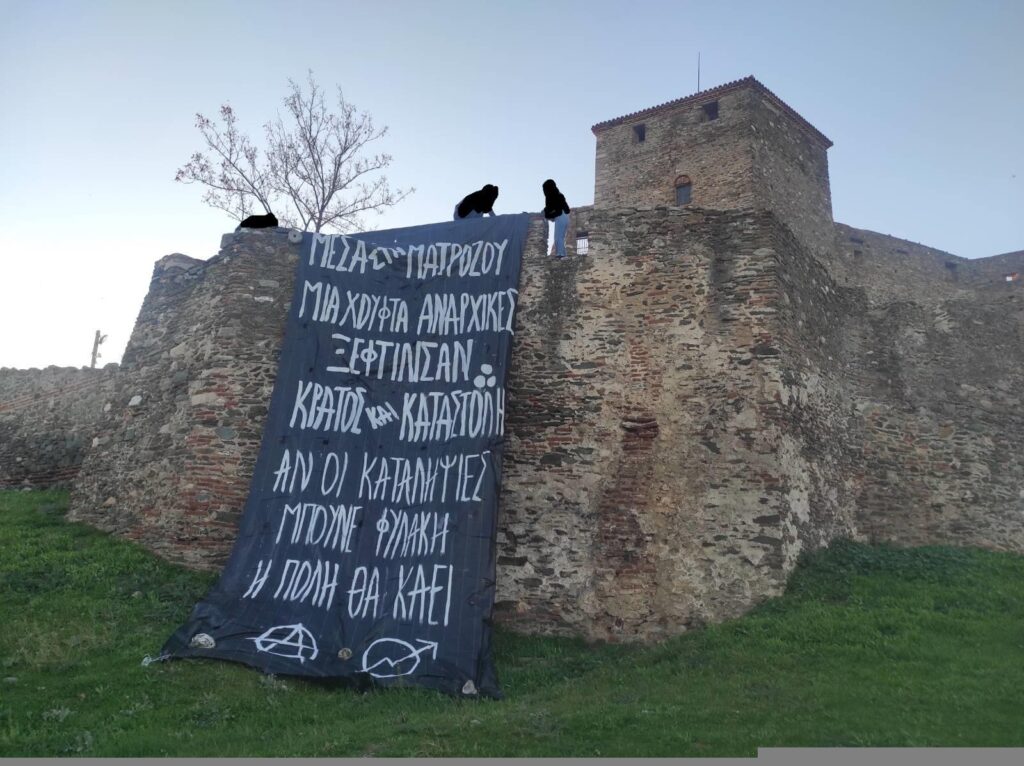 ΜΕΣΑ ΣΤΗ ΜΑΤΡΟΖΟΥ
ΜΙΑ ΧΟΥΦΤΑ ΑΝΑΡΧΙΚΕΣ
ΞΕΦΤΙΛΙΣΑΝ
ΚΡΑΤΟΣ ΚΑΙ ΚΑΤΑΣΤΟΛΗ
ΑΝ ΟΙ ΚΑΤΑΛΗΨΙΕΣ
ΜΠΟΥΝΕ ΦΥΛΑΚΗ
Η ΠΟΛΗ ΘΑ ΚΑΕΙ